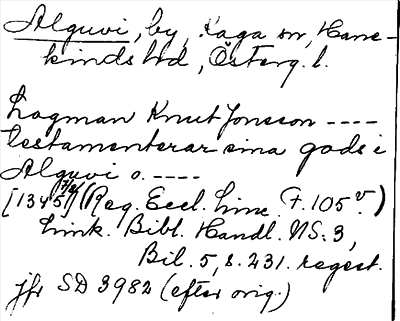 Alguvi, by, Kaga sn, Hane-
kinds hd, Österg. l.
Lagman Knut Jonsson ----
testamenterar sina gods i
Alguvi o. ----
[1345 7/8] (Reg. Eccl. Linc. F. 105 v.)
Link. Bibl. Handl. NS: 3,
Bil. 5, s. 231. regest.
jfr SD 3982 (efter orig.)